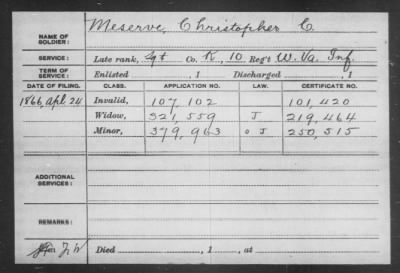 NAME OF SOLDIER: Meserve, Christopher C.
SERVICE: Late rank, Sgt Co. K, 10 Reg't W. Va. Inf.
TERM OF SERVICE: Enlisted , 1 Discharged , 1
DATE OF FILING. CLASS. APPLICATION NO. LAW. CERTIFICATE NO.
1866, Apl. 24 Invalid, 107,102 101,420
Widow, 321,559 J 219,464
Minor, 379,963 J 250,515
ADDITIONAL SERVICES:
REMARKS:
Died , 1 , at